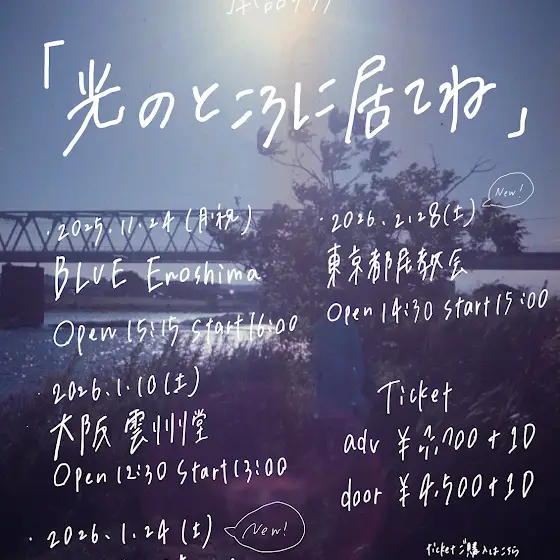 「光のところに居てね」
・2025.11.24(月・祝)
BLUE Enoshima
Open 15:15 Start 16:00
・2026.1.10(土)
大阪 雲州堂
Open 12:30 Start 13:00
・2026.1.24(土)
New!
・2026.2.28(土)
New!
東京都民教会
Open 14:30 Start 15:00
Ticket
adv ¥ +1D
door ¥4,500+1D
Ticketご購入はこちら